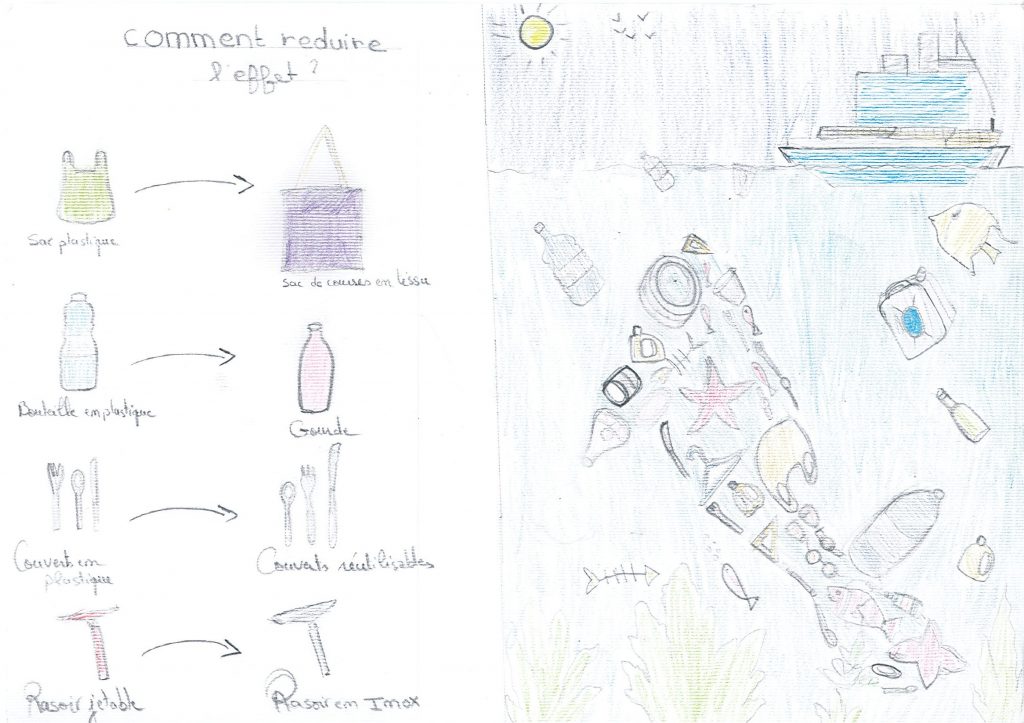 Comment reduire
l'effet ?
Sac plastique
Sac de courses en tissu
Bouteille en plastique
Gourde
Couverts en
plastique
Couverts réutilisables
Rasoir jetable
Rasoir en Inox